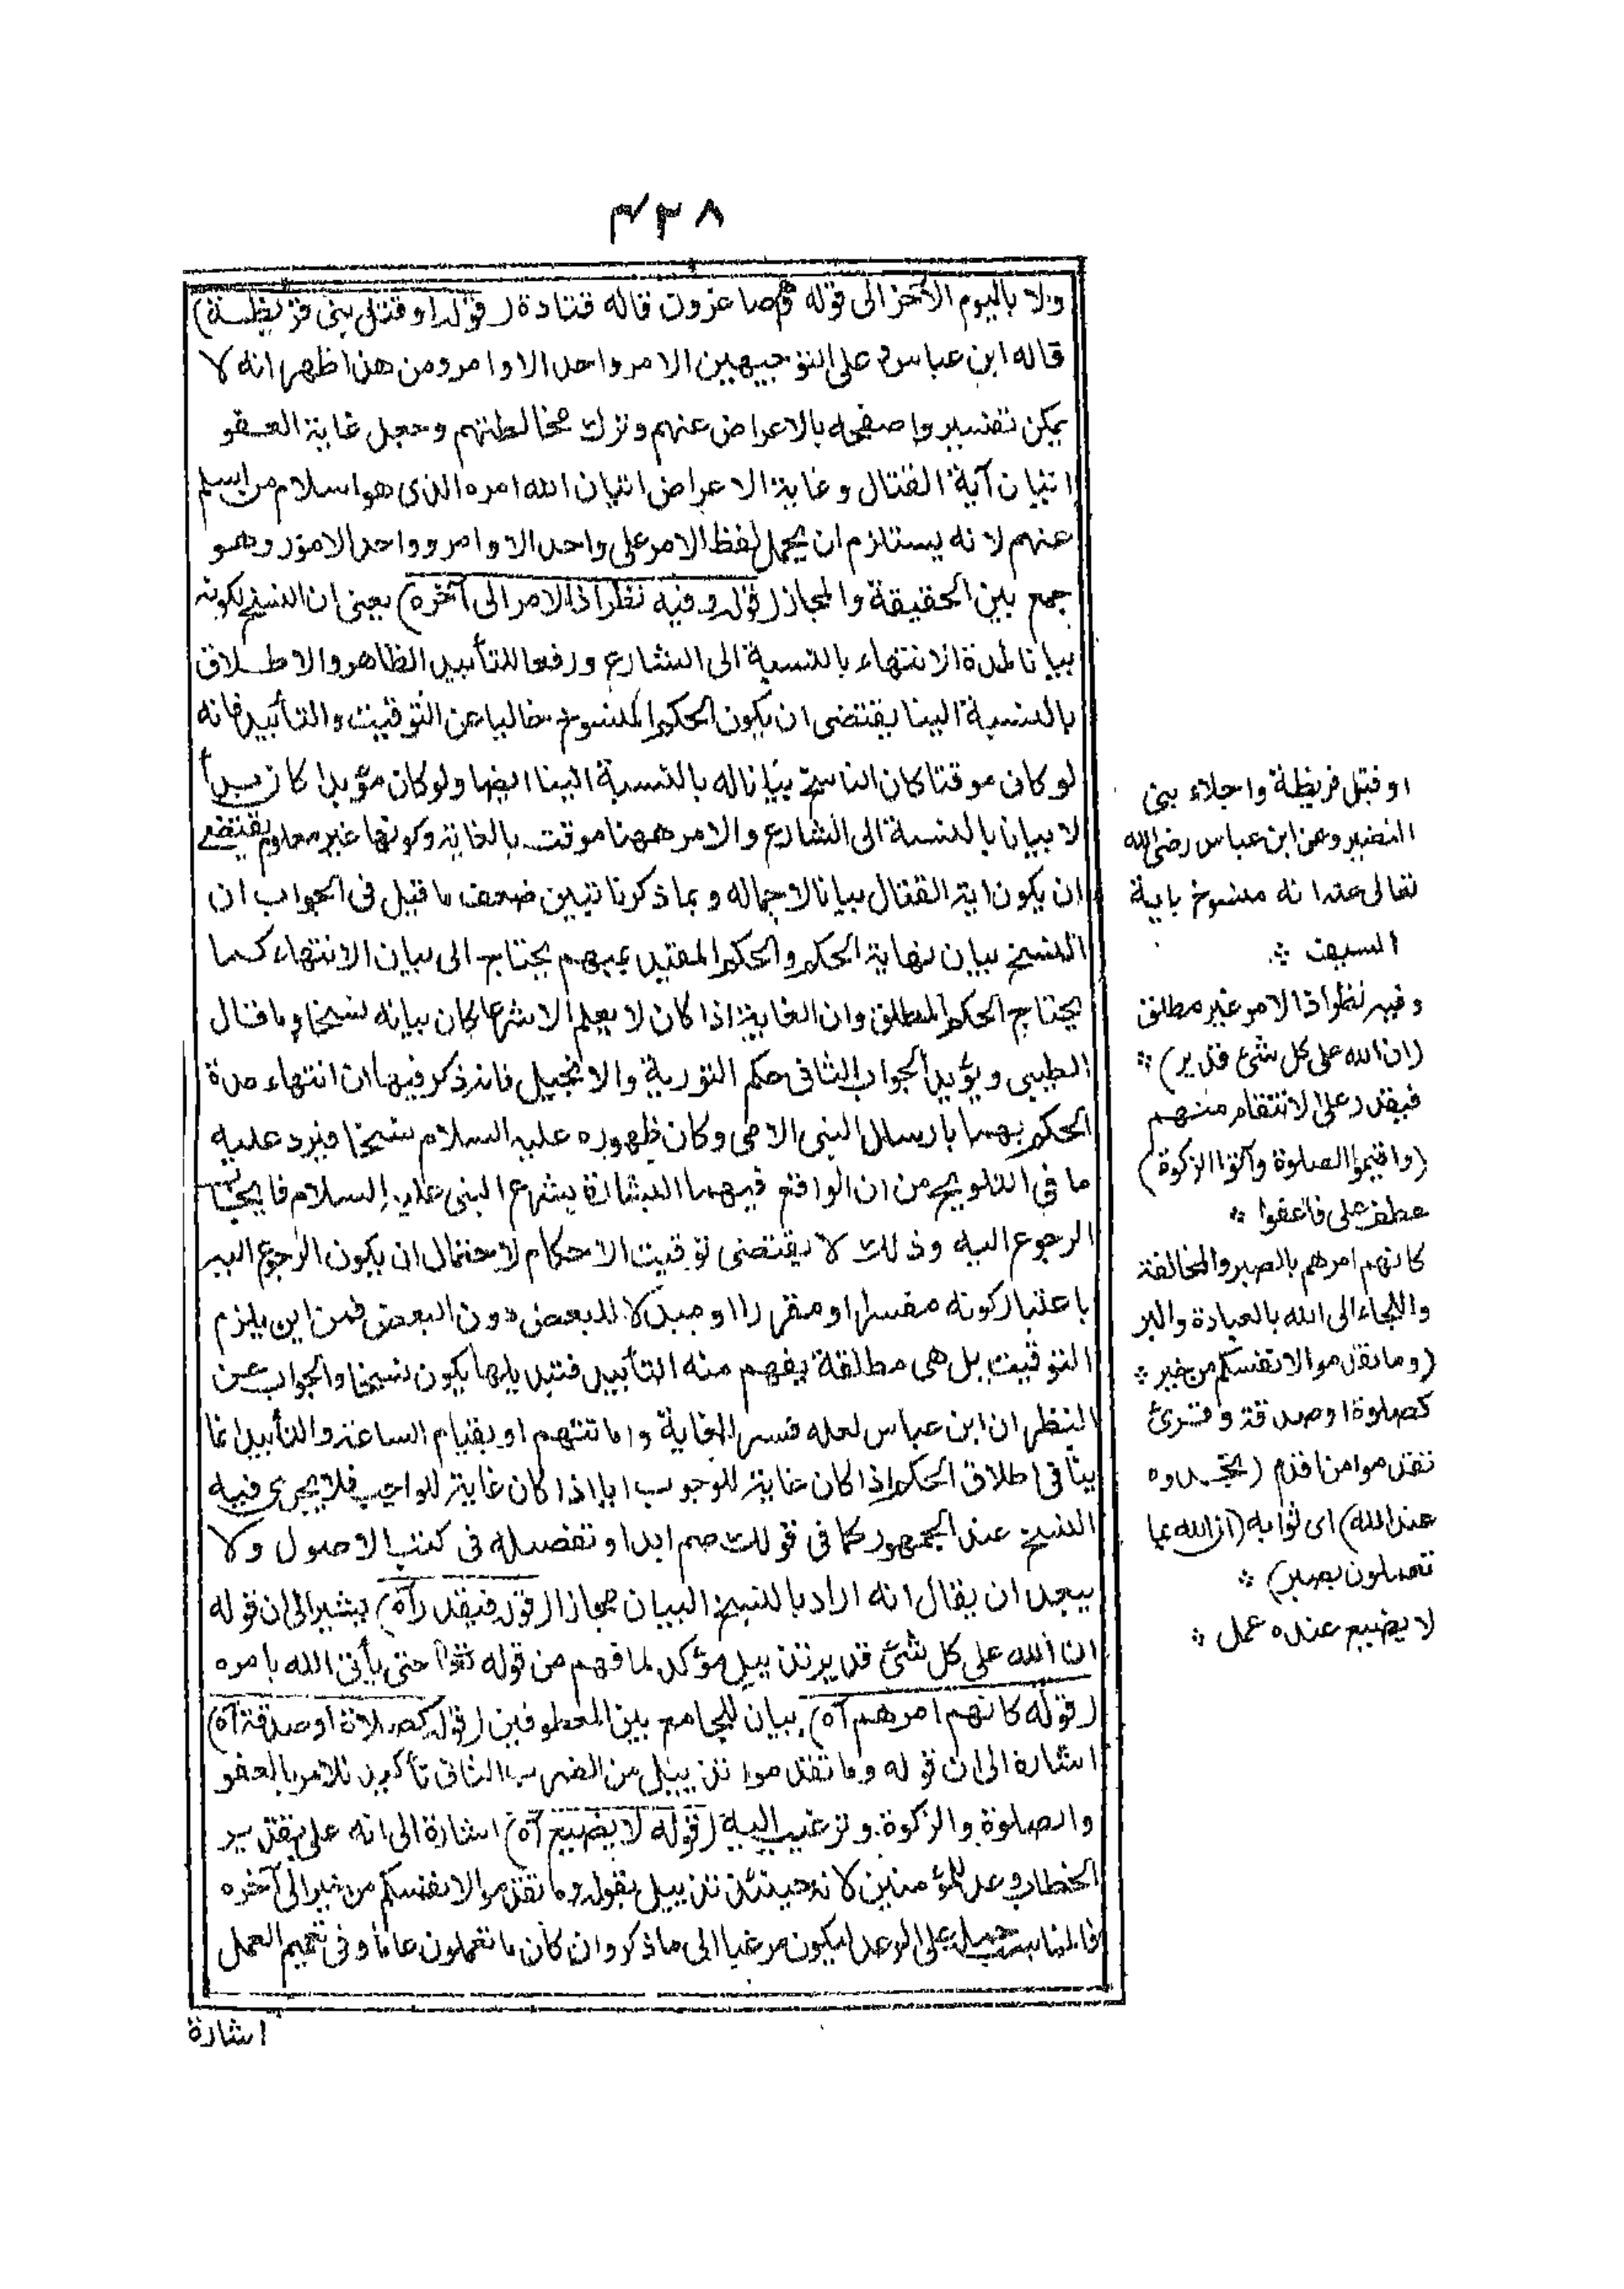 ٤٣٨
ولا باليوم الآخر الى قوله وهم صاغرون قاله قتادة (قوله او قتل بنى قريظة)
قاله ابن عباس على التوجيهين الامر واحد الاوامر ومن هذا ظهر انه لا
يمكن تفسير واصفحوا بالاعراض عنهم وترك مخالطتهم وجعل غاية العفو
اتيان آية القتال وغاية الاعراض اتيان الله امره الذى هو اسلام من اسلم
عنهم لانه يستلزم ان يحمل لفظ الامر على واحد الاوامر وواحد الامور وهو
جمع بين الحقيقة والمجاز (قوله وفيه نظر اذ الامر الى آخره) يعنى ان النسخ لكونه
بيانا لمدة الانتهاء بالنسبة الى الشارع ورفعا للتأبيد الظاهر والاطلاق
بالنسبة الينا يقتضى ان يكون الحكم المنسوخ خاليا عن التوقيت والتأبيد فانه
لو كان موقتا كان الناسخ بيانا له بالنسبة الينا ايضا ولو كان مؤبدا كان بدأ
لا بيانا بالنسبة الى الشارع والامر ههنا موقت بالغاية وكونها غير معلوم يقتضى
ان يكون اية القتال بيانا لاجماله وبما ذكرنا تبين ضعف ما قيل فى الجواب ان
النسخ بيان نهاية الحكم والحكم المقيد بمبهم يحتاج الى بيان الانتهاء كما
يحتاج الحكم المطلق وان الغاية اذا كان لا يعلم الا شرعا كان بيانه نسخا وما قال
الطيبى ويؤيد الجواب الثانى حكم التورية والانجيل فانه ذكر فيها ان انتهاء مدة
الحكم بهما بارسال النبى الامى وكان ظهوره عليه السلام نسخا فيرد عليه
ما فى التلويح من ان الواقع فيهما البشارة بشرع النبى عليه السلام فايجابهما
الرجوع اليه وذلك لا يقتضى توقيت الاحكام لاحتمال ان يكون الرجوع اليه
باعتبار كونه مفسرا او مقررا او مبدلا للبعض دون البعض فمن اين يلزم
التوقيت بل هى مطلقة يفهم منه التأبيد فتبديلها يكون نسخا والجواب عن
النظر ان ابن عباس لعله فسر الغاية واماتتهم او بقيام الساعة والتأبيد انما
ينافى اطلاق الحكم اذا كان غاية للوجوب اما اذا كان غاية للواجب فلا يجرى فيه
النسخ عند الجمهور كما فى قولك صم ابدا وتفصيله فى كتب الاصول ولا
يبعد ان يقال انه اراد بالنسخ البيان مجازا (قوله فيقدر آه) يشير الى ان قوله
ان الله على كل شئ قدير تذييل مؤكد لما فهم من قوله حتى يأتى الله بامره
(قوله كانهم امرهم آه) بيان للجامع بين المعطوفين (قوله كصلاة او صدقة آه)
اشارة الى ان قوله وما تقدموا تذييل من الضرب الثانى تأكيد للامر بالعفو
والصلوة والزكوة وترغيب اليه (قوله لا يضيع آه) اشارة الى انه على تقدير
الخطاب وعد للمؤمنين لانه حينئذ تذييل بقوله وما تقدموا لانفسكم من خير الى آخره
فالمناسب حمله على الوعد ليكون مرغبا الى ما ذكر وان كان ما تعملون عاما وفى تعميم العمل
اشارة
او قتل قريظة واجلاء بنى
النضير وعن ابن عباس رضى الله
تعالى عنه انه منسوخ باية
السيف
وفيه نظر اذا الامر غير مطلق
(ان الله على كل شئ قدير)
فيقدر على الانتقام منهم
(واقيموا الصلوة وآتوا الزكوة)
عطف على فاعفوا
كانهم امرهم بالصبر والمخالفة
واللجاء الى الله بالعبادة والبر
(وما تقدموا لانفسكم من خير
كصلوة او صدقة وقرئ
تقدموا من اقدم (تجدوه
عند الله) اى ثوابه (ان الله بما
تعملون بصير)
لا يضيع عنده عمل